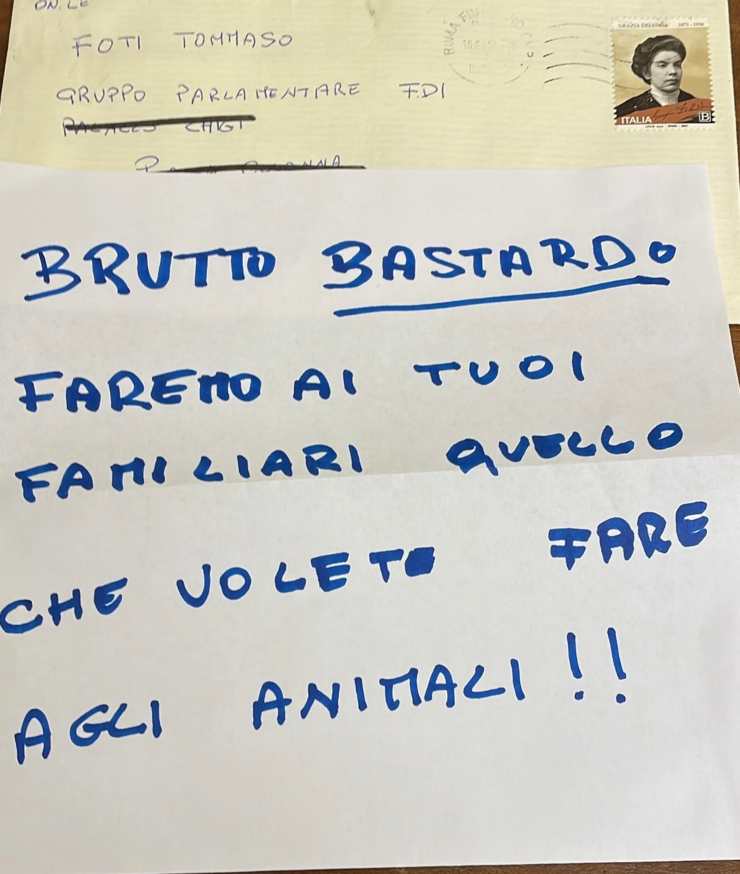 ON.LE
FOTI TOMMASO
GRUPPO PARLAMENTARE F.DI
ITALIA
B
BRUTTO BASTARDO
FAREMO AI TUOI
FAMILIARI QUELLO
CHE VOLETE FARE
AGLI ANIMALI!!